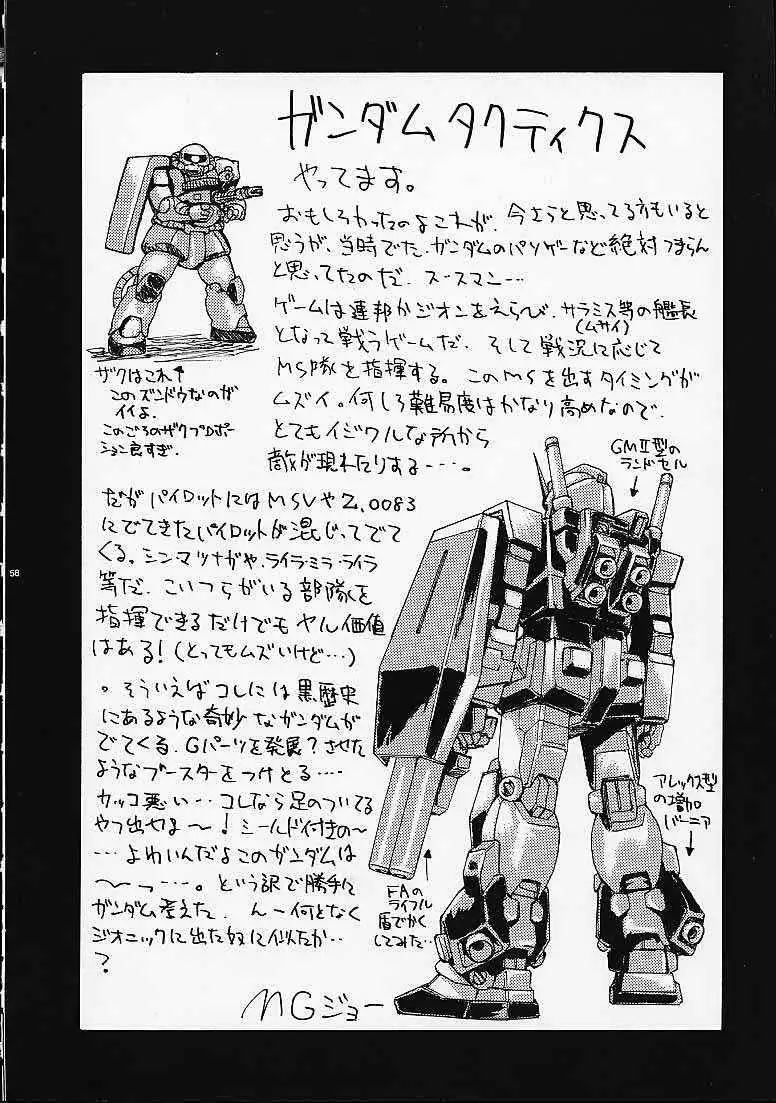 ガンダムタクティクス
やってます。
おもしろかったのよこれが、今さらと思ってる方もいると
思うが、当時でた、ガンダムのパソゲーなど絶対つまらん
と思ってたのだ。スースマン…
ゲームは連邦かジオンをえらび、サラミス等の艦長
(ムサイ)
となって戦うゲームだ、そして戦況に応じて
MS隊を指揮する。このMSを出すタイミングが
ムズイ。何しろ難易度はかなり高めなので、
とてもイジワルな所から
敵が現れたりする…。
ザクはこれ↑
このズンドウなのが
イイよ。
このごろのザクプロポー
ション良すぎ.
だがパイロットにはMSVやZ,0083
にでてきたパイロットが混じってでて
くる。シン・マツナガや、ライラ・ミラ・ライラ
等だ、こいつらがいる部隊を
指揮できるだけでもヤル価値
はある!(とってもムズいけど…)
。そういえばコレには黒歴史
にあるような奇妙なガンダムが
でてくる、Gパーツを発展?させた
ようなブースターをつけとる…
カッコ悪い…コレなら足のついてる
やつ出せよ〜!シールド付きの〜
…よわいんだよこのガンダムは
〜っ…。という訳で勝手に
ガンダム考えた、んー何となく
ジオニックに出た奴に似たか…
?
GMⅡ型の
ランドセル
アレックス型
の増加
バーニア
FAの
ライフル
盾でかく
してみた…
NGジョー
58